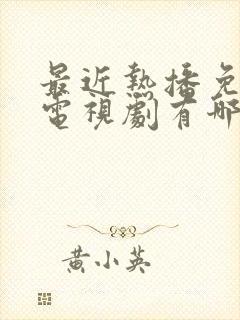 最近熱播免
電視劇有哪
黃小英